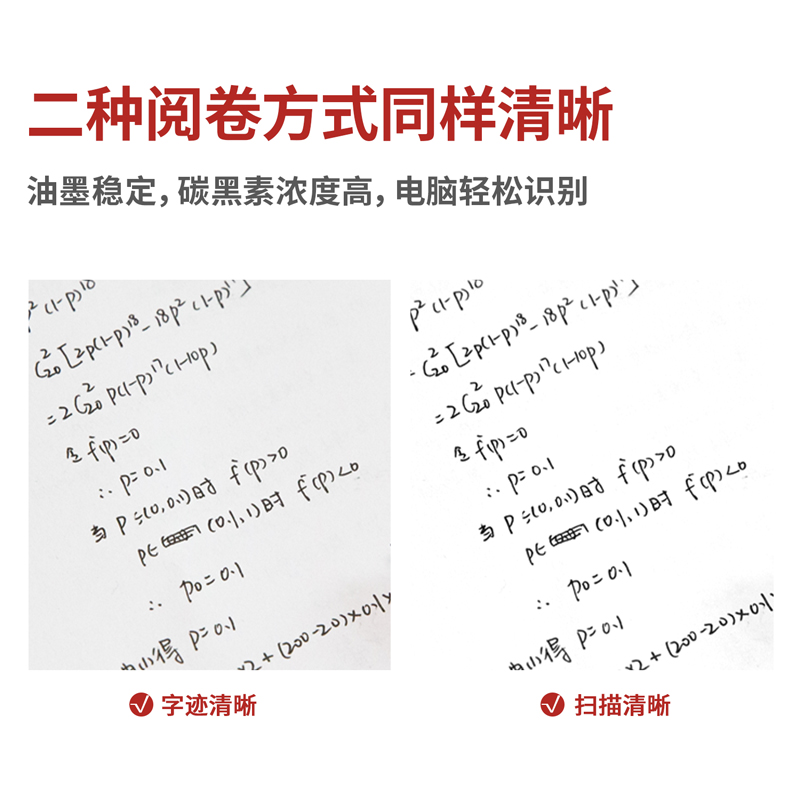 二种阅卷方式同样清晰
油墨稳定，碳黑素浓度高，电脑轻松识别
p²(1-p)¹⁸
C²₂₀[2p(1-p)¹⁸-18p²(1-p)¹⁷]
=2C²₂₀p(1-p)¹⁷(1-10p)
令f'(p)=0
∴p=0.1
当P=(0,0.1)时 f'(p)>0
p∈(0.1,1)时 f'(p)<0
∴ p₀=0.1
得 p=0.1
×2+(200-20)×0.1×
字迹清晰
p²(1-p)¹⁸
=C²₂₀[2p(1-p)¹⁸-18p²(1-p)¹⁷]
=2C²₂₀p(1-p)¹⁷(1-10p)
令f'(p)=0
∴p=0.1
当P=(0,0.1)时 f'(p)>0
p∈(0.1,1)时 f'(p)<0
∴ p₀=0.1
得 p=0.1
×2+(200-20)×0.1
扫描清晰